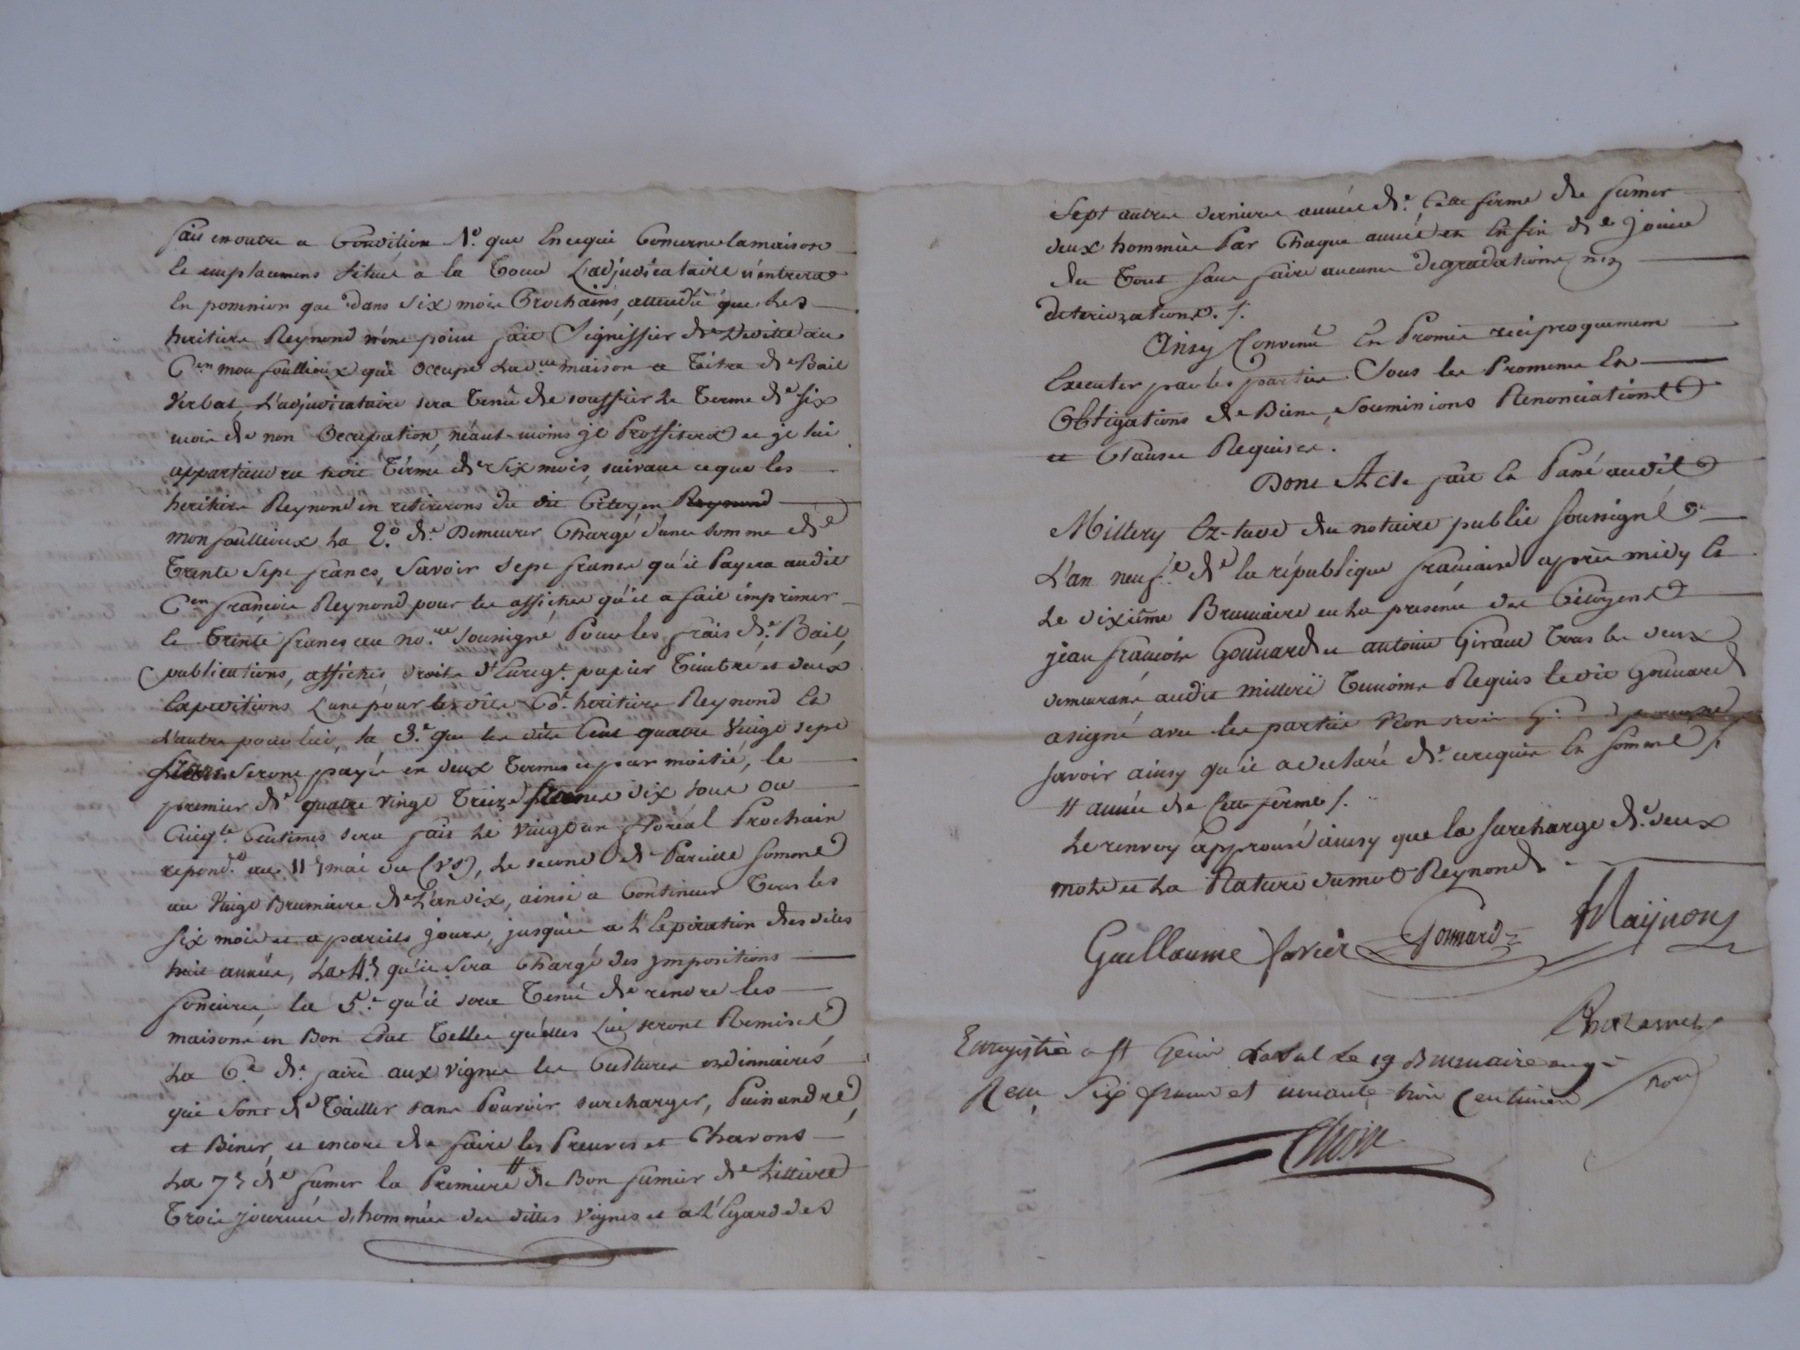 fait en outre a Condition 1º que En ce qui Concerne la maison
le emplacement situé a la Tour L'adjudicataire n'entrera
En pocession que dans six mois Prochains, attendû que les
heritiers Reynond n'ont point fait Signiffier de devitte au
C.en monfoullioux qui occupe la d.te maison a titre de Bail
Verbal L'adjudicataire sera Tenû de souffrir le Terme de six
mois de non Occupation, néant-moins je Proffitera et je lui
appartiendra Terme de six mois, suivant ce que les
heritiers Reynond en retirerons du dit Citoyen Reynond
monfoullioux La 2.º de Demeurer Chargé d'une somme de
Trente Sept francs, Savoir Sept francs qu'il Payera audit
C.en françois Reynond pour les affiches qu'il a fait imprimer
le trente francs au no.re sousigné Pour les frais de Bail
publications, affiches, droits d'Enreg.t papier Timbré et deux
Expeditions L'une pour les dits Co.. heritiers Reynond En
d'autre pour lui, la 3.e que les dits Cent quatre Vingt sept
francs seront payés en deux Termes et par moitié, le
premier de quatre vingt Treize francs dix sous ou
Cinq.te Centimes sera fait le Vingt un floréal Prochain
repond.t au 11 mai du (VS), le second de Pareille Somme
au Vingt Brumaire de L'an dix, ainsi a Continuer Tous les
six mois et a pareils jours, jusquà a l'Expiration des dites
huit années, La 4.e qu'il sera Chargé des ympositions
foncieres la 5.e qu'il sera Tenû de rendre les
maisons en Bon Etat Telles qu'elles Lui seront Remises
La 6.e de faire aux Vignes les Cultures ordinnaires
qui sont de Tailler sans Pouvoir surcharger, Puinandre,
et Biner, et encore de faire les Preuves et Chavons
La 7.e de fumer la Premiere # de Bon fumier de Littiere
Trois journées d'hommée des dittes Vignes et a L'Egard des
Sept autres dernieres années de Cette ferme de fumer
deux hommées Par Chaque année et Enfin de jouir
du Tout sans faire aucunes degradations ny
deteriozations ./.
Ainsy Convenû En Promis réciproquement
Executer par les parties Sous les Promesses En
Obligations de Biens, Souminions Renonciations
et Clauses Requises.
Dont Acte fait En Passé audit
Millery Ez-tude du notaire public soussigné
L'an neuf.e de la république francaise après midy le
le dixième Brumaire en La presence des Citoyens
jean françois Gonnard et antoine Giraud Tous les deux
demeurans audit milleri Temoins Requis le dit Gonnard
a signé avec les parties Non ledit Giraud pour ne
savoir ainsy qu'il a declaré de cerequis En Sommé ./.
# année de Cette ferme ./.
Le renvoy approuvé ainsy que la surcharge de deux
mots et La Rature du mot Reynond.
Guillaume favier Gonnard Maÿnon
Enregistré a St Genis Laval Le 19 Brumaire an 9
Reçu Six francs et centimes